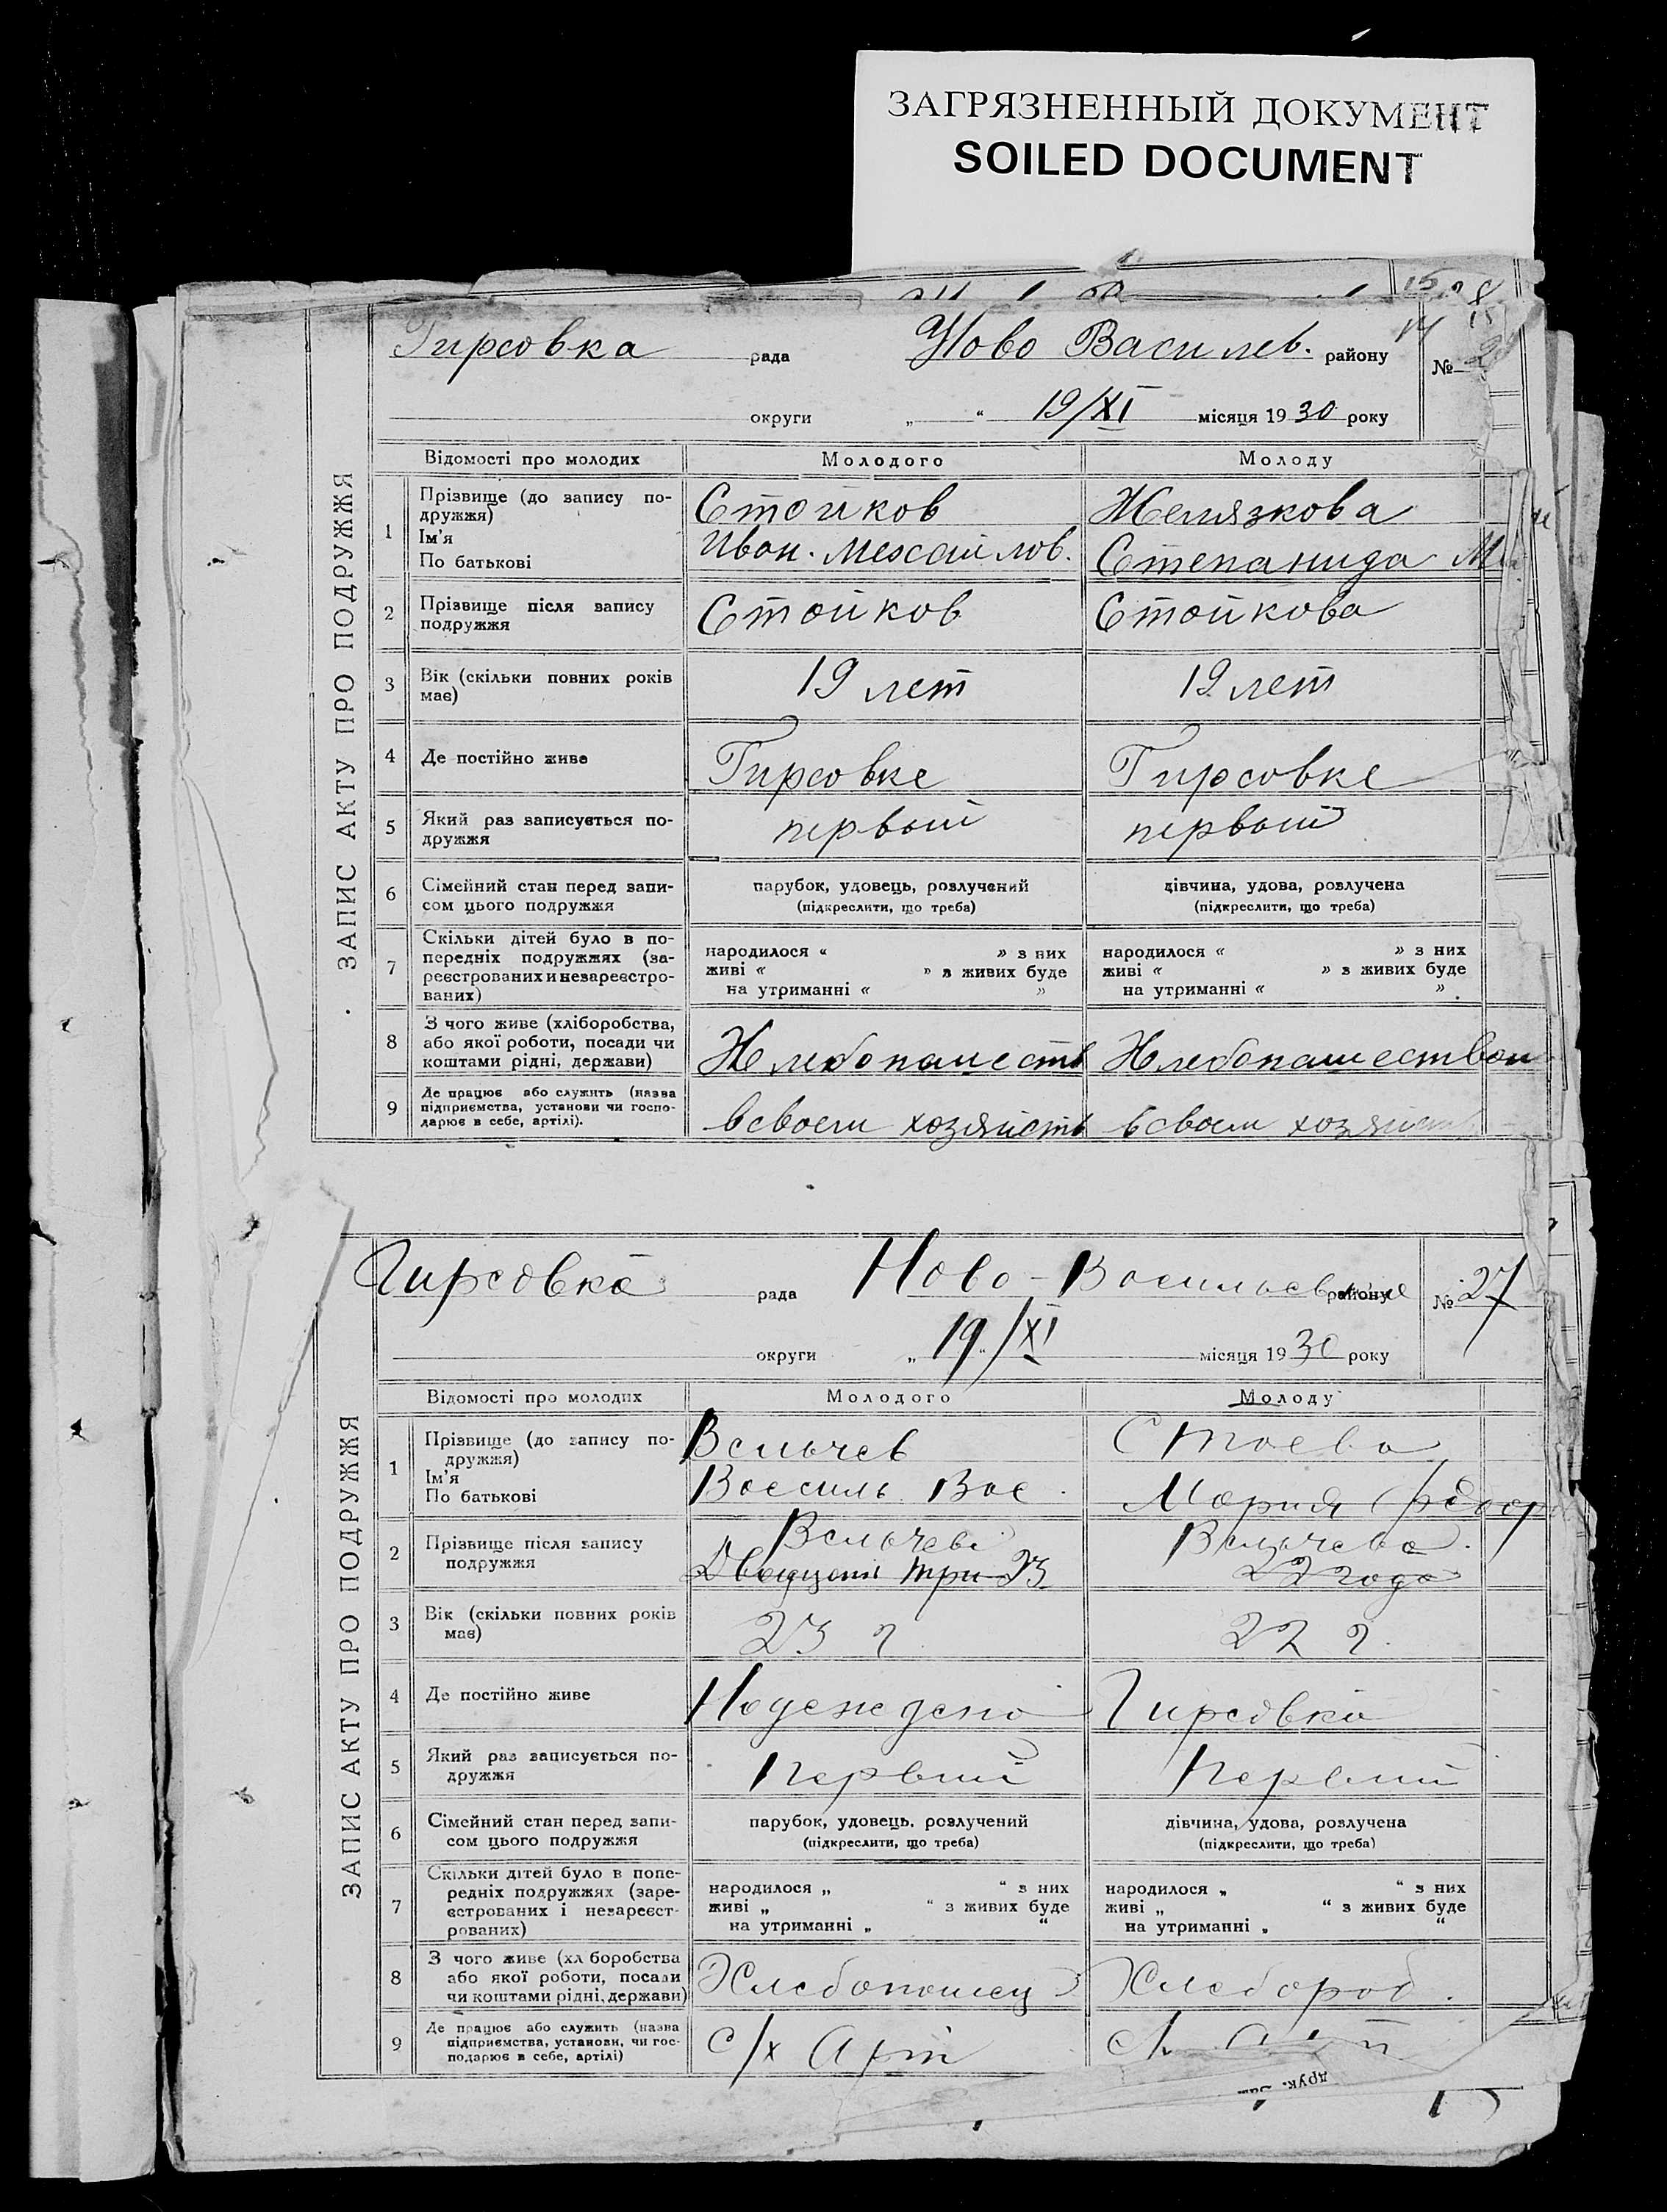 ЗАГРЯЗНЕННЫЙ ДОКУМЕНТ
SOILED DOCUMENT
ЗАПИС АКТУ ПРО ПОДРУЖЖЯ
Гирсовка рада Ново Василев. району №
округи „ “ 19/XI місяця 1930 року
Відомості про молодих Молодого Молоду
1 Прізвище (до запису по-
дружжя)
Ім'я
По батькові
Стойков
Иван. Мехайлов.
Желязкова
Степанида
2 Прізвище після запису
подружжя
Стойков Стойкова
3 Вік (скільки повних років
має)
19 лет 19 лет
4 Де постійно живе Гирсовке Гирсовке
5 Який раз записується по-
дружжя
первый первый
6 Сімейний стан перед запи-
сом цього подружжя
парубок, удовець, розлучений
(підкреслити, що треба)
дівчина, удова, розлучена
(підкреслити, що треба)
7 Скільки дітей було в по-
передніх подружжях (за-
реєстрованих и незареєстро-
ваних)
народилося « » з них
живі « » з живих буде
на утриманні « »
народилося « » з них
живі « » з живих буде
на утриманні « »
8 З чого живе (хліборобства,
або якої роботи, посади чи
коштами рідні, держави)
Хлебопашеств Хлебопашеством
9 Де працює або служить (назва
підприємства, установи чи госпо-
дарює в себе, артілі).
всвоем хозяйств всвоем хозяйств
ЗАПИС АКТУ ПРО ПОДРУЖЖЯ
Гирсовка рада Ново-Васильевке району № 27
округи „ 19 “ /XI місяця 1930 року
Відомості про молодих Молодого Молоду
1 Прізвище (до запису по-
дружжя)
Ім'я
По батькові
Вельчев
Василь Вас.
Стоева
Мария Федор
2 Прізвище після запису
подружжя
Вельчев Вельчева.
Двадцать три 23 22 года
3 Вік (скільки повних років
має)
23 г 22 г.
4 Де постійно живе Гирсовка
5 Який раз записується по-
дружжя
Первий Первий
6 Сімейний стан перед запи-
сом цього подружжя
парубок, удовець, розлучений
(підкреслити, що треба)
дівчина, удова, розлучена
(підкреслити, що треба)
7 Скільки дітей було в попе-
редніх подружжях (заре-
єстрованих і незареєст-
рованих)
народилося „ “ з них
живі „ “ з живих буде
на утриманні „ “
народилося „ “ з них
живі „ “ з живих буде
на утриманні „ “
8 З чого живе (хл боробства
або якої роботи, посади
чи коштами рідні, держави)
Хлебопашец Хлебороб.
9 Де працює або служить (назва
підприємства, установи, чи гос-
подарює в себе, артілі)
с/х Арт
друк.